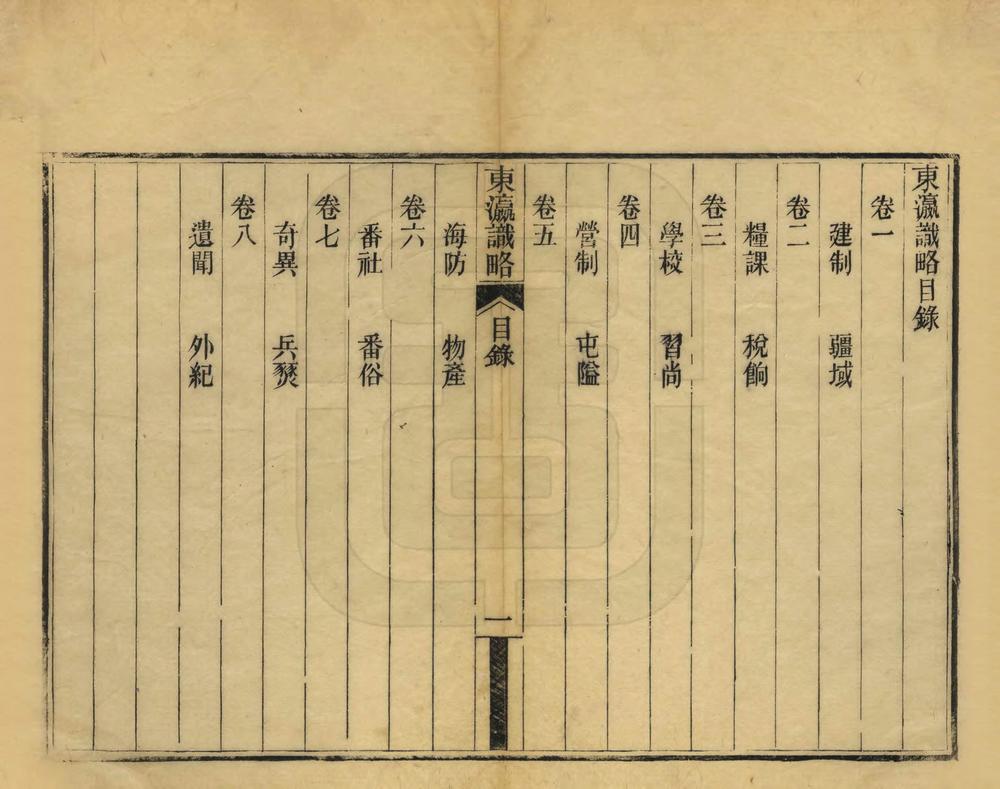 東瀛識略目錄
卷一
建制 疆域
卷二
糧課 稅餉
卷三
學校 習尚
卷四
營制 屯隘
卷五
東瀛識略 目錄 一
海防 物產
卷六
番社 番俗
卷七
奇異 兵燹
卷八
遺聞 外紀